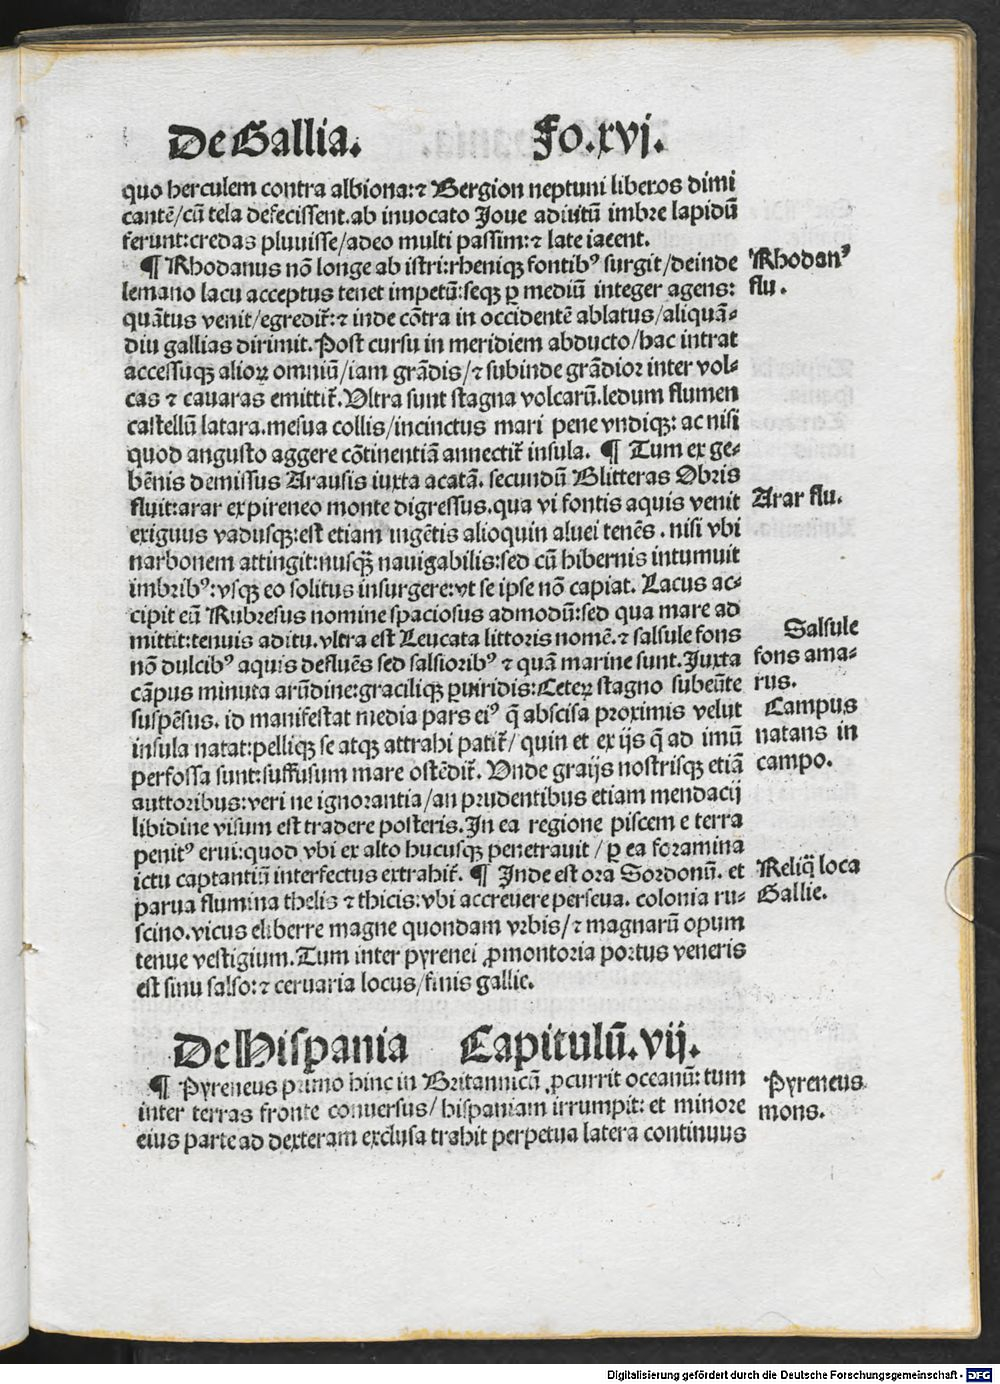 De Gallia. Fo.xvj.
quo herculem contra albiona:⁊ Bergion neptuni liberos dimi
cantē/cū tela defecissent.ab inuocato Ioue adiutū imbre lapidū
ferunt:credas pluuisse/adeo multi passim:⁊ late iacent.
¶ Rhodanus nō longe ab istri:rheniqꝫ fontibꝰ surgit/deinde
lemano lacu acceptus tenet impetū:seqꝫ ꝑ mediū integer agens:
quātus venit/egredit̄:⁊ inde cōtra in occidentē ablatus/aliquā-
diu gallias dirimit.Post cursu in meridiem abducto/hac intrat
accessuqꝫ alioꝝ omniū/iam grādis/⁊ subinde grādior inter vol-
cas ⁊ cauaras emittit̄.Vltra sunt stagna volcarū.ledum flumen
castellū latara.mesua collis/incinctus mari pene vndiqꝫ: ac nisi
quod angusto aggere cōtinentiā annectit̄ insula. ¶ Tum ex ge-
bēnis demissus Arausis iuxta acatā. secundū Blitteras Obris
fluit:arar ex pireneo monte digressus.qua vi fontis aquis venit
exiguus vadusqꝫ:est etiam ingētis alioquin aluei tenēs . nisi vbi
narbonem attingit:nusqꝫ̄ nauigabilis:sed cū hibernis intumuit
imbribꝰ:vsqꝫ eo solitus insurgere:vt se ipse nō capiat. Lacus ac-
cipit eū Rubresus nomine spaciosus admodū:sed qua mare ad
mittit:tenuis aditu.vltra est Leucata littoris nomē.⁊ salsule fons
nō dulcibꝰ aquis defluēs sed salsioribꝰ ⁊ quā marine sunt.Iuxta
cāpus minuta arūdine:graciliqꝫ ꝑuiridis:Ceteꝝ stagno subeūte
suspēsus. id manifestat media pars eiꝰ q̄ abscisa proximis velut
insula natat:pelliqꝫ se atqꝫ attrahi patit̄/ quin et ex ijs q̄ ad imū
perfossa sunt:suffusum mare ostēdit̄. Vnde graijs nostrisqꝫ etiā
auttoribus:veri ne ignorantia/an prudentibus etiam mendacij
libidine visum est tradere posteris.In ea regione piscem e terra
penitꝰ erui:quod vbi ex alto hucusqꝫ penetrauit / ꝑ ea foramina
ictu captantiū interfectus extrahit̄. ¶ Inde est ora Sordonū. et
parua flumina thelis ⁊ thicis:vbi accreuere perseua. colonia ru-
scino.vicus eliberre magne quondam vrbis/⁊ magnarū opum
tenue vestigium.Tum inter pyrenei ꝓmontoria portus veneris
est sinu salso:⁊ ceruaria locus/finis gallie.
Rhodanꝰ
flu .
Arar flu.
Salsule
fons ama-
rus.
Campus
natans in
campo.
Reliq̄ loca
Gallie.
De Hispania Capitulū.vij.
¶ Pyreneus primo hinc in Britannicū ꝓcurrit oceanū: tum
inter terras fronte conuersus/ hispaniam irrumpit: et minore
eius parte ad dexteram exclusa trahit perpetua latera continuus
Pyreneus
mons.
Digitalisierung gefördert durch die Deutsche Forschungsgemeinschaft - DFG